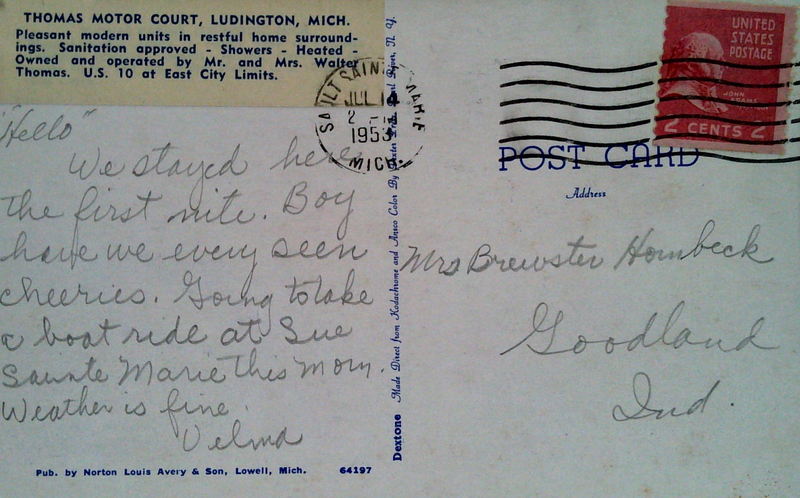 THOMAS MOTOR COURT, LUDINGTON, MICH.
Pleasant modern units in restful home surround-
ings. Sanitation approved - Showers - Heated -
Owned and operated by Mr. and Mrs. Walter
Thomas. U.S. 10 at East City Limits.
"Hello"
We stayed here
the first nite. Boy
have we every seen
cheeries. Going to take
a boat ride at Sue
Sainte Marie this morn.
Weather is fine.
Velma
Pub. by Norton Louis Avery & Son, Lowell, Mich. 64197
Dextone Made Direct from Kodachrome and Ansco Color By
SAULT SAINTE MARIE
JUL
2
1953
MICH
UNITED
STATES
POSTAGE
JOHN
ADAMS
2 CENTS 2
POST CARD
Address
Mrs Brewster Hornbeck
Goodland
Ind.